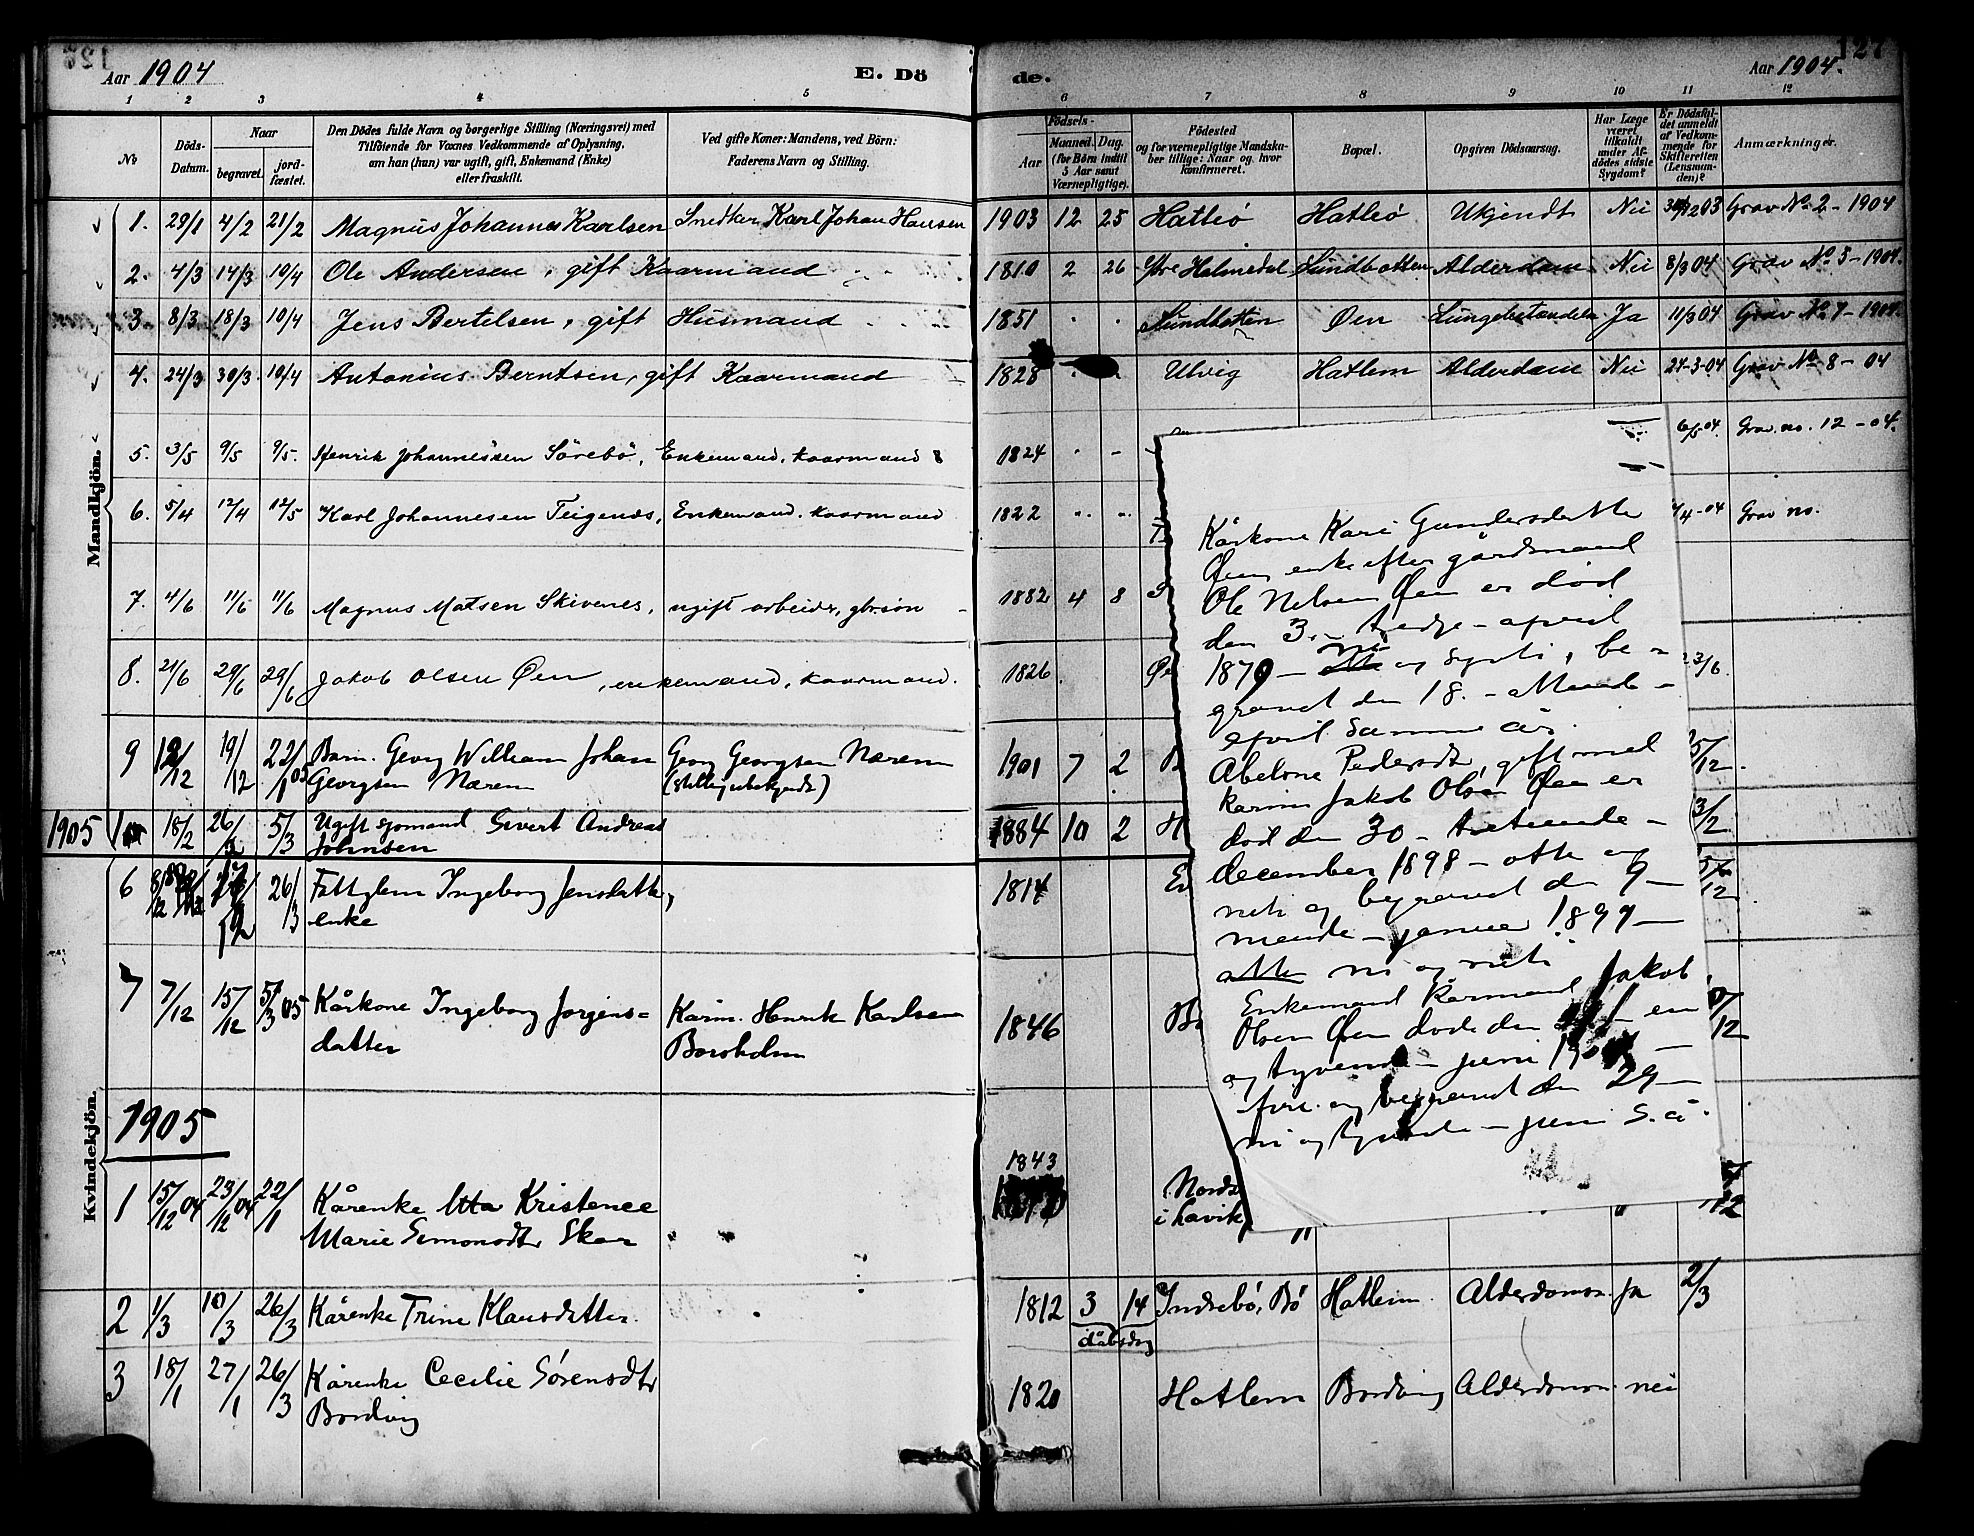 127
Aar 1904
E. Dö
de.
Aar 1904.
1 2 3 4 5
6 7 8 9 10 11 12
No
Döds-
Datum.
Naar
begravet.
jord-
fæstet.
Den Dödes fulde Navn og borgerlige Stilling (Næringsvei) med
Tilföiende for Voxnes Vedkommende af Oplysning,
om han (hun) var ugift, gift, Enkemand (Enke)
eller fraskilt.
Ved gifte Koner: Mandens, ved Börn:
Faderens Navn og Stilling.
Födsels-
Aar
Maaned. Dag.
(for Börn indtil
5 Aar samt
Værnepligtige).
Födested
og for værnepligtige Mandska-
ber tillige: Naar og hvor
konfirmeret.
Bopæl.
Opgiven Dödsaarsag.
Har Læge
været
tilkaldt
under Af-
dödes sidste
Sygdom?
Er Dödsfal-
det anmeldt
af Vedkom-
mende for
Skifteretten
(Lensman-
den)?
Anmærkninger.
Mandkjön.
1. 29/1 4/2 21/2 Magnus Johannes Karlsen Snedker Karl Johan Hansen 1903 12 25 Hatleö Hatleö Ukjendt Nei Grav No 2 - 1904
2. 4/3 14/3 10/4 Ole Andersen, gift Kaarmand 1810 2 26 Ytre Holmedal Sundbotten Alderdom Nei 8/3 04 Grav No 3 - 1904.
3. 8/3 18/3 10/4 Jens Bertelsen, gift Husmand 1851 Sundbotten Øen Lungebetændelse Ja 11/3 04 Grav No 7 - 1904.
4. 24/3 30/3 10/4 Antonius Berntsen, gift Kaarmand 1828 Ulvig Hatlem Alderdom Nei 24-3-04 Grav No 8 - 04
5. 3/5 9/5 9/5. Henrik Johannessen Sörebö, Enkemand, kaarmand 1824 6/5 04. Grav. no. 12 - 04.
6. 5/4 12/4 12/5 Karl Johannesen Teigenæs, Enkemand. kaarmand 1822 /4-04 Grav no.
7. 4/6 11/6 11/6 Magnus Matsen Skivenes, ugift arbeider, gbr.sön 1882 4 8
8. 21/6 29/6 29/6 Jakob Olsen Øen, enkemand, kaarmand. 1826 Øe 23/6.
9 12/12 19/12 22/1 05 Barn. Georg William Johan Georg Georgsen Næren 1901 7 2 /12.
Georgsen Næren (stilling ubekjendt)
1905 1 18/2 26/2 5/3 Ugift sjömand Sivert Andreas 1884 10 2 H 3/2
Johnsen
Kvindekjön.
6 26/3 Fattiglem Ingeborg Jensdatter, 1814 /12.
enke
7 7/12 15/12 5/3 05 Kårkone Ingeborg Jörgens= Kårm. Henrik Karlsen 1846 /12
datter Borsholm
1905
1843
1 15/12 04 23/12 04 22/1 Kårenke Kristence Nords
Marie Simonsdtr Skor i Lavik 12
2 1/3 10/3 26/3 Kårenke Trine Klausdatter. 1812 3 14 Indrebö, Bö Hatlem. Alderdomsv. ja 2/3
dåbsdag
3 18/1 27/1 26/3 Kårenke Cecilie Sörensdtr 1820 Hatlem Bordvig Alderdomsv. nei
Bordvig
Kårkone Kari Gundersdatter
Øen, enke efter gårdmand
Ole Nelsen Øen er död
den 3. - tredje - april
ni
1879 - otte og sytti, be =
gravet den 18. - attende -
april samme år.
Abelone Pedersdt., gift med
kårm. Jakob Olsen Øen er
död den 30 - tretiende -
december 1898 - otte og
niti og begravet den 9 -
niende - januar 1899 -
otte ni og niti
Enkemand kårmand Jakob
Olsen Øen döde den 21 - en
og tyvende - juni 1904 -
fire. og begravet den 29 -
ni og tyvende - juni s. å.